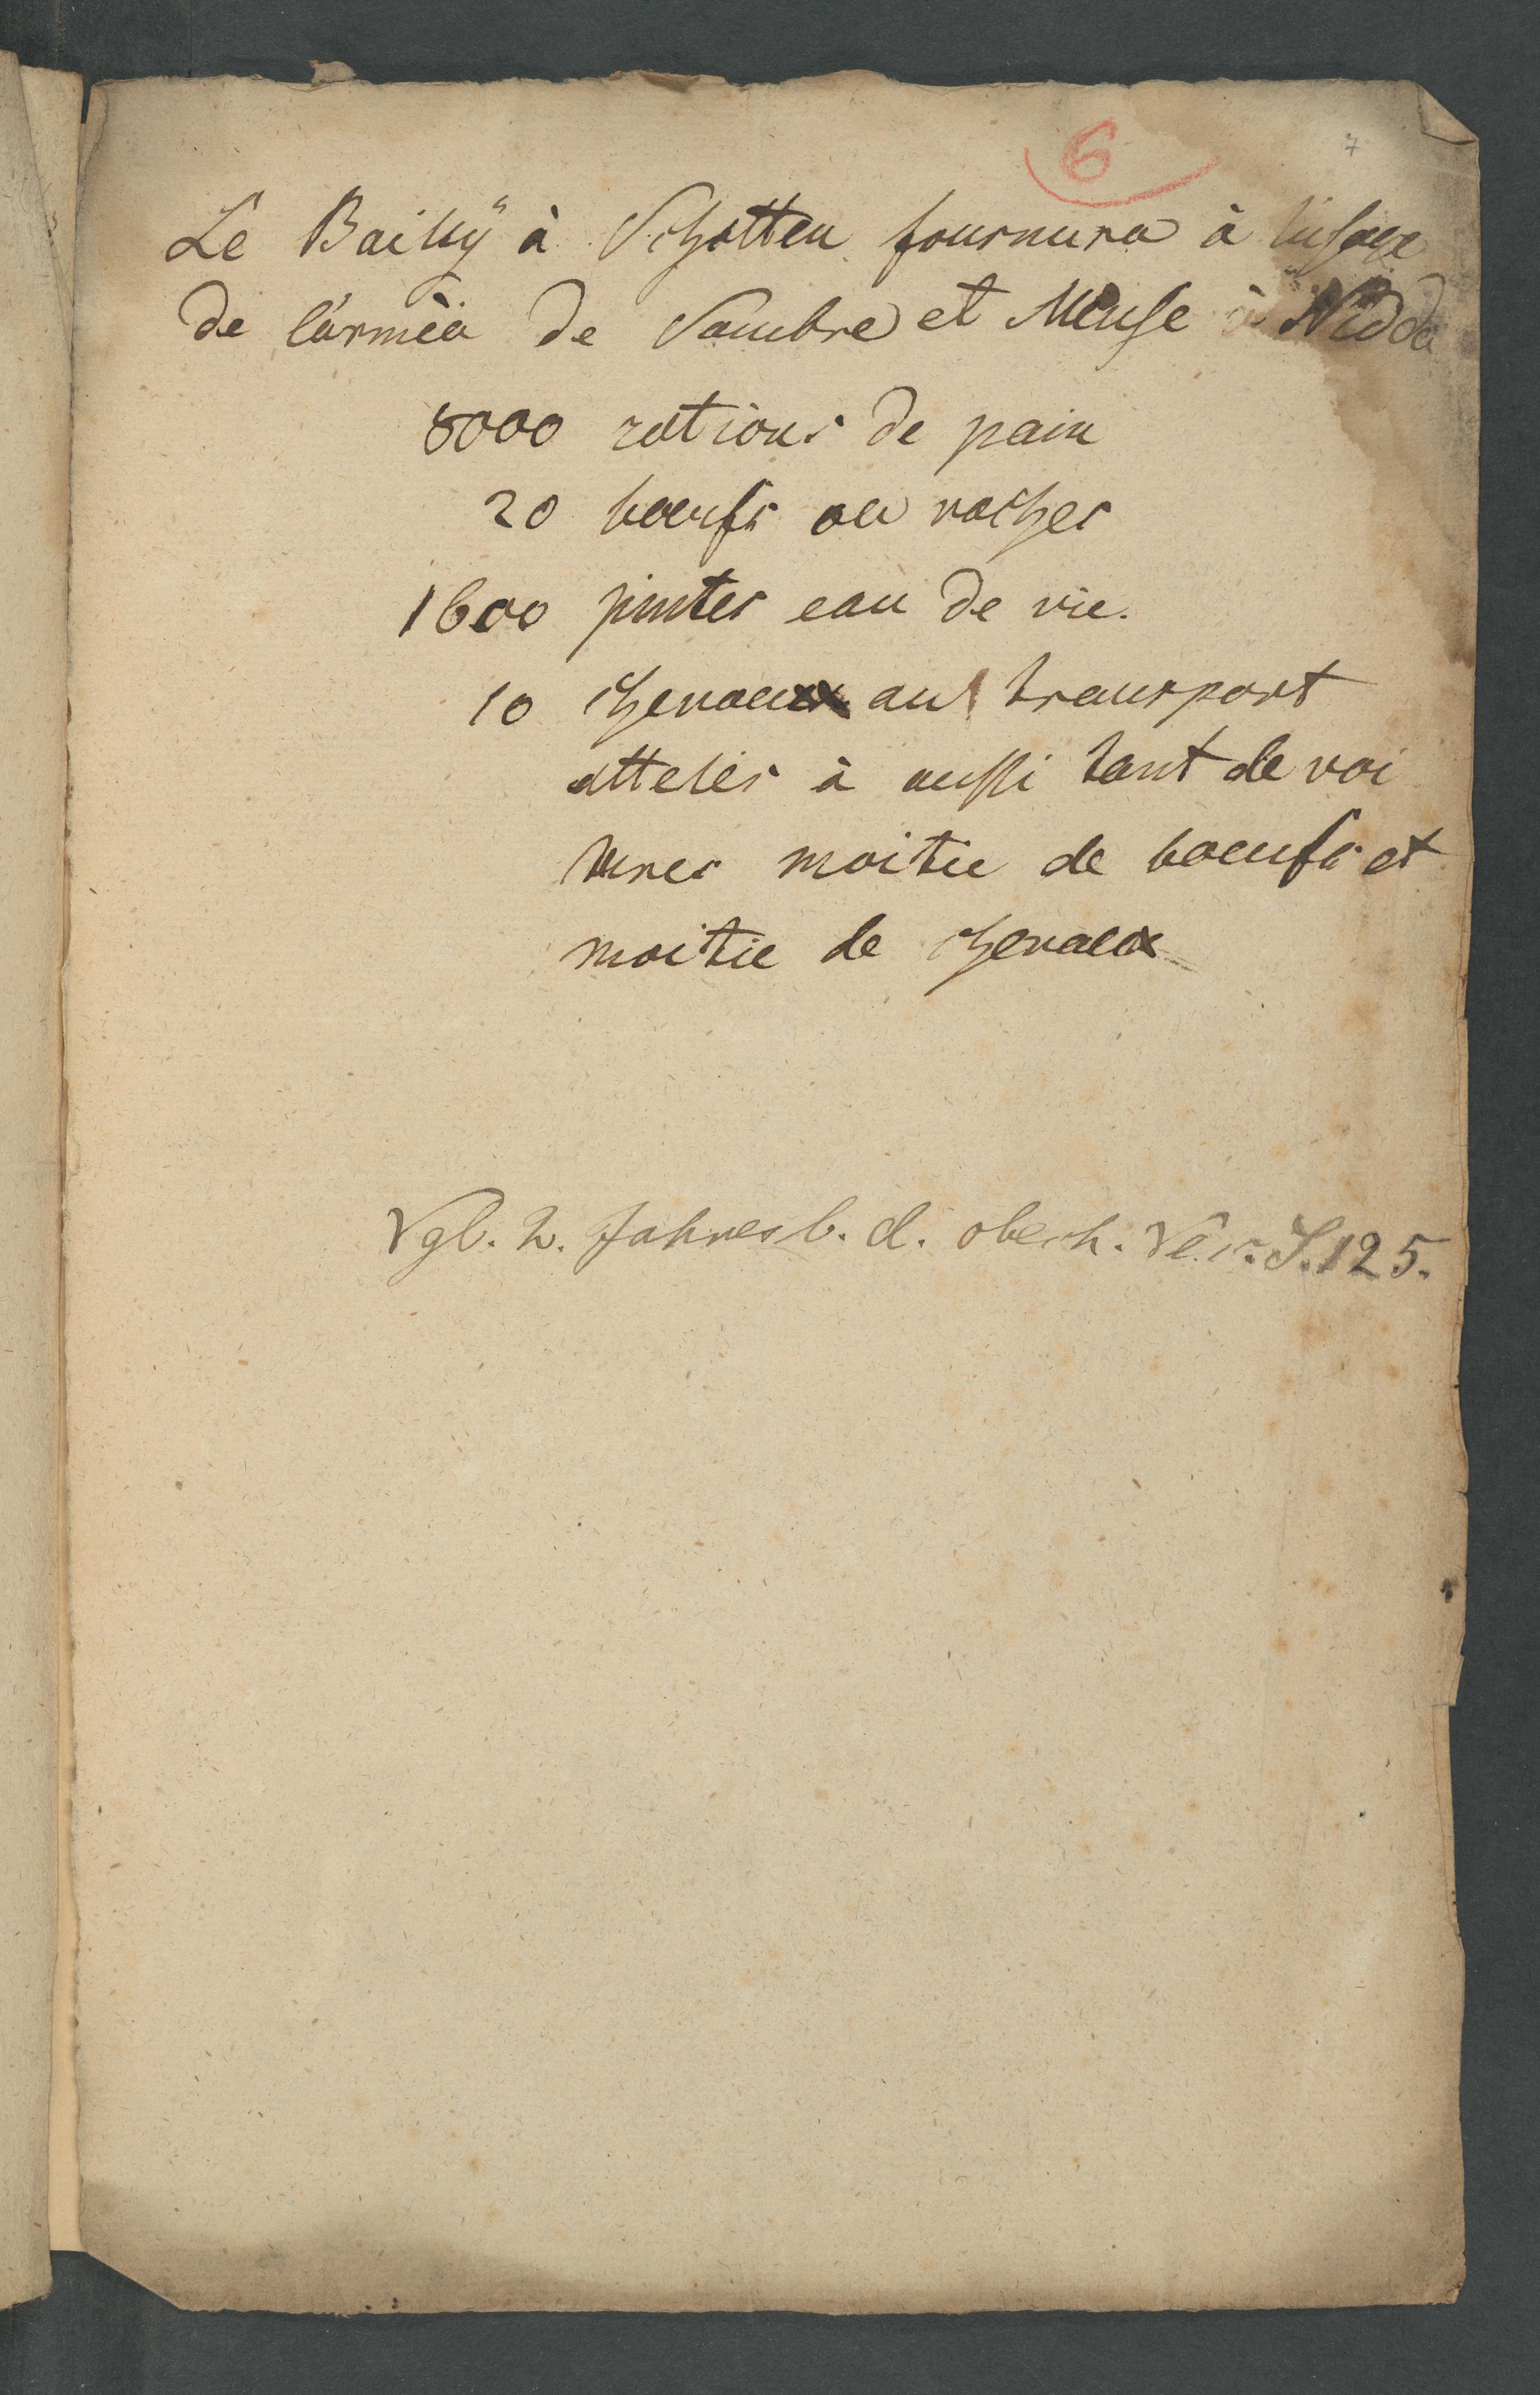 6
7
Le Baillÿ à Schotten fournura à l'usage
de l'armèe de Sambre et Meuse à Nidda
8000 rations de pain
20 boeufs ou vaches
1600 pintes eau de vie.
10 chevaux au transport
atteles à aussi tant de voi
tures moitie de boeufs et
moitie de chevaux
Vgl. 2. Jahresb. d. oberh. Ver. S. 125.